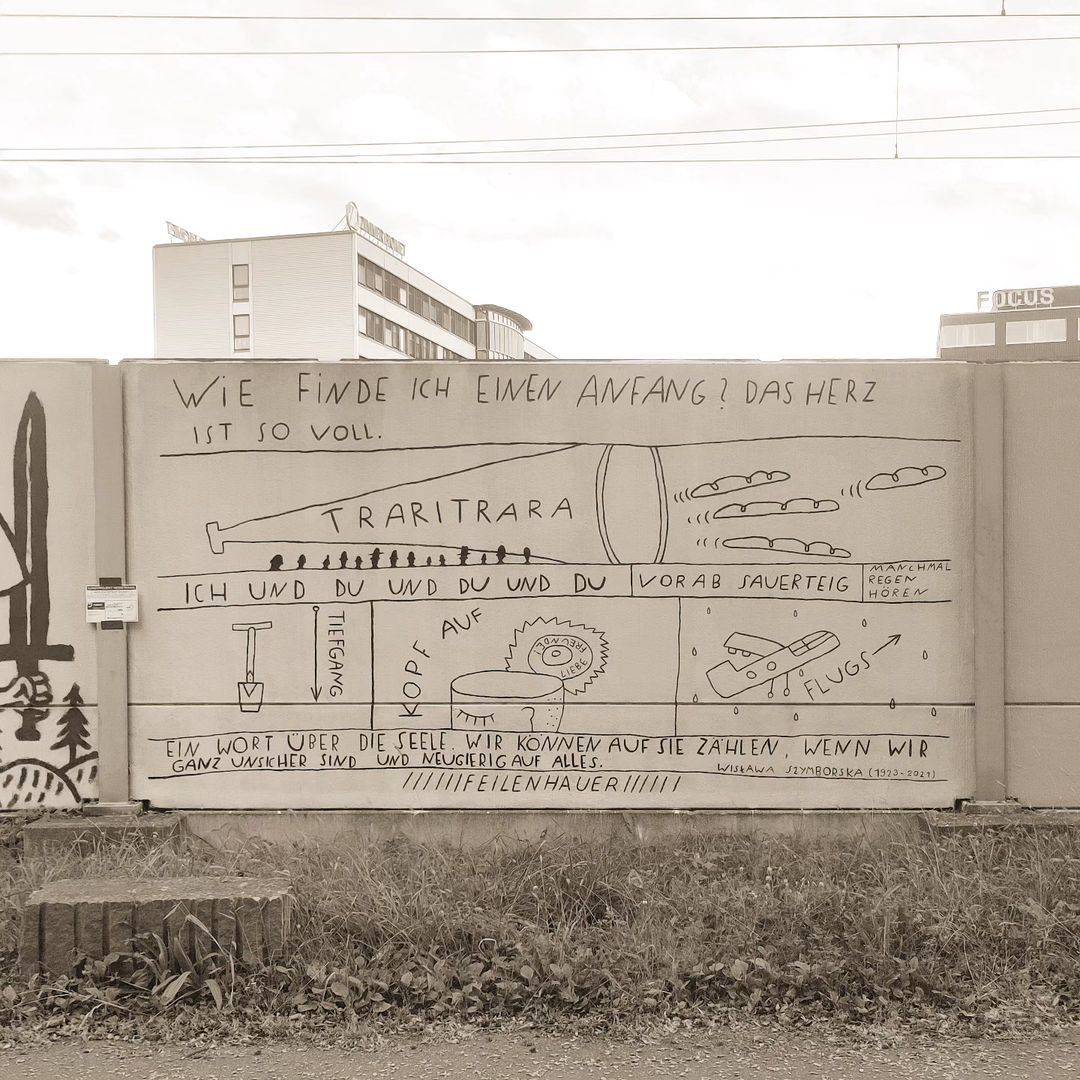 FOCUS
WIE FINDE ICH EINEN ANFANG? DAS HERZ
IST SO VOLL.
TRARITRARA
ICH UND DU UND DU UND DU
VORAB SAUERTEIG
MANCHMAL
REGEN
HÖREN
TIEFGANG
KOPF AUF
LIEBE FREUNDE!
FLUGS
EIN WORT ÜBER DIE SEELE. WIR KÖNNEN AUF SIE ZÄHLEN, WENN WIR
GANZ UNSICHER SIND UND NEUGIERIG AUF ALLES.
WISŁAWA SZYMBORSKA (1923-2021)
//////FEILENHAUER//////